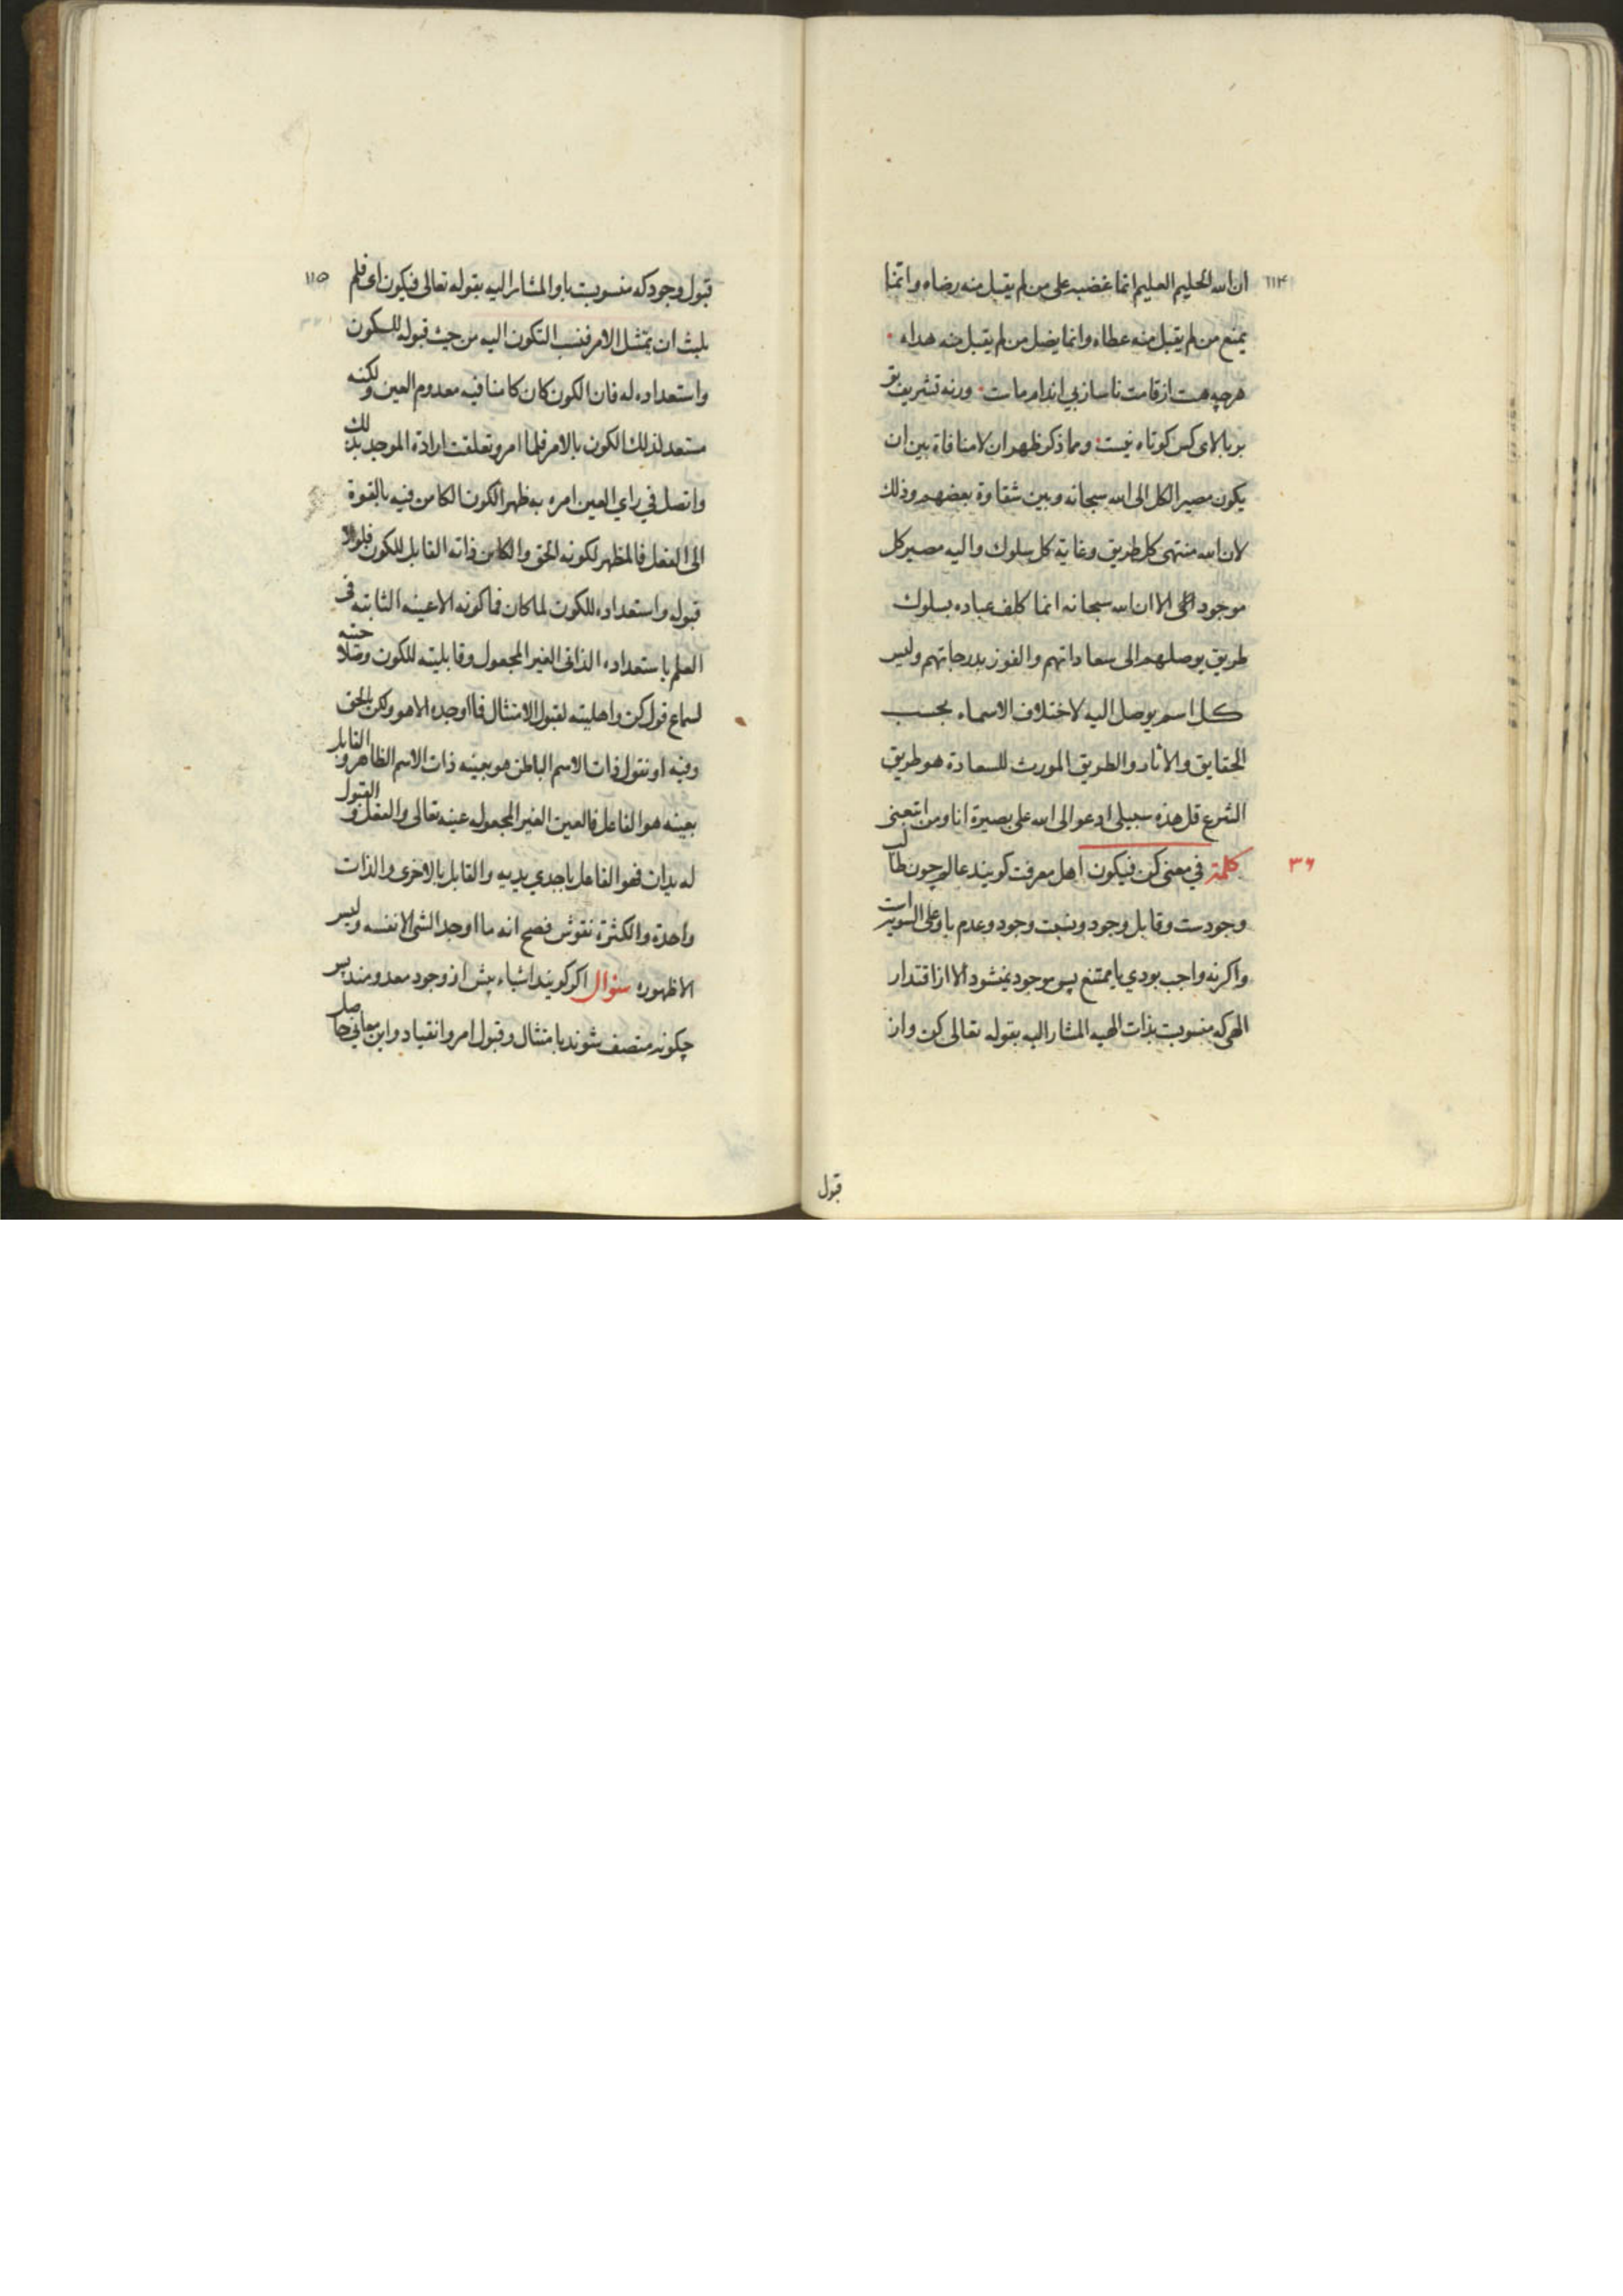 ١١٤
ان الله الحليم العليم انما غضبه على من لم يقبل منه رضاه وانما
يمنع من لم يقبل منه عطاه وانما يضل من لم يقبل منه هداه
هرچه هست از قامت ناساز بی اندام ماست ورنه تشریف تو
بر بالای کس کوتاه نیست ومما ذكر ظهر ان لا منافاة بين ان
يكون مصير الكل الى الله سبحانه وبين شقاوة بعضهم وذلك
لان الله منتهى كل طريق وغاية كل سلوك واليه مصير كل
موجود الا ان الله سبحانه انما كلف عباده بسلوك
طريق يوصلهم الى سعاداتهم والفوز بدرجاتهم وليس
كل اسم يوصل اليه لاختلاف الاسماء بحسب
الحقايق والاثار والطريق المورث للسعادة هو طريق
الشرع قل هذه سبيلي ادعو الى الله على بصيرة انا ومن اتبعني
٣٦
كلمة في معنى كن فيكون اهل معرفت کویند عالم چون طالب
وجودست وقابل وجود ونسبت وجود وعدم باو على السویه است
واکرنه واجب بودي یا ممتنع پس موجود نمیشود الا از اقتدار
الهی که منسوبست بذات الهيه المشار اليه بقوله تعالى كن واز
قبول
١١٥
قبول وجود که منسوبست باو المشار اليه بقوله تعالى فيكون اى فلم
يلبث ان يمتثل الامر فنسب التكون اليه من حيث قبوله للكون
واستعداده له فان الكون كان كامنا فيه معدوم العين ولكنه
مستعد لذلك الكون بالامر فلما امر وتعلقت ارادة الموجد بذلك
واتصل في راي العين امره به ظهر الكون الكامن فيه بالقوة
الى الفعل فالمظهر لكونه الحق والكاين ذاته القابل للكون فلولا
قبوله واستعداده للكون لما كان فما كونه الا عينه الثابته فى
العلم باستعداده الذاتى الغير المجعول وقابليته للكون وصلاحيته
لسماع قول كن واهليته لقبول الامتثال فما اوجده الا هو ولكن بالحق
وفيه او نقول ذات الاسم الباطن هو بعينه ذات الاسم الظاهر والقابل
بعينه هو الفاعل فالعين الغير المجعوله عينه تعالى والفعل والقبول
له يدان فهو الفاعل باحدي يديه والقابل بالاخرى والذات
واحدة والكثرة نقوش فصح انه ما اوجد الشى الا نفسه وليس
الا ظهوره سؤال اکر کویند اشیاء پیش از وجود معدومند پس
چکونه متصف شوند بامتثال وقبول امر وانقیاد واین معانی حاصل